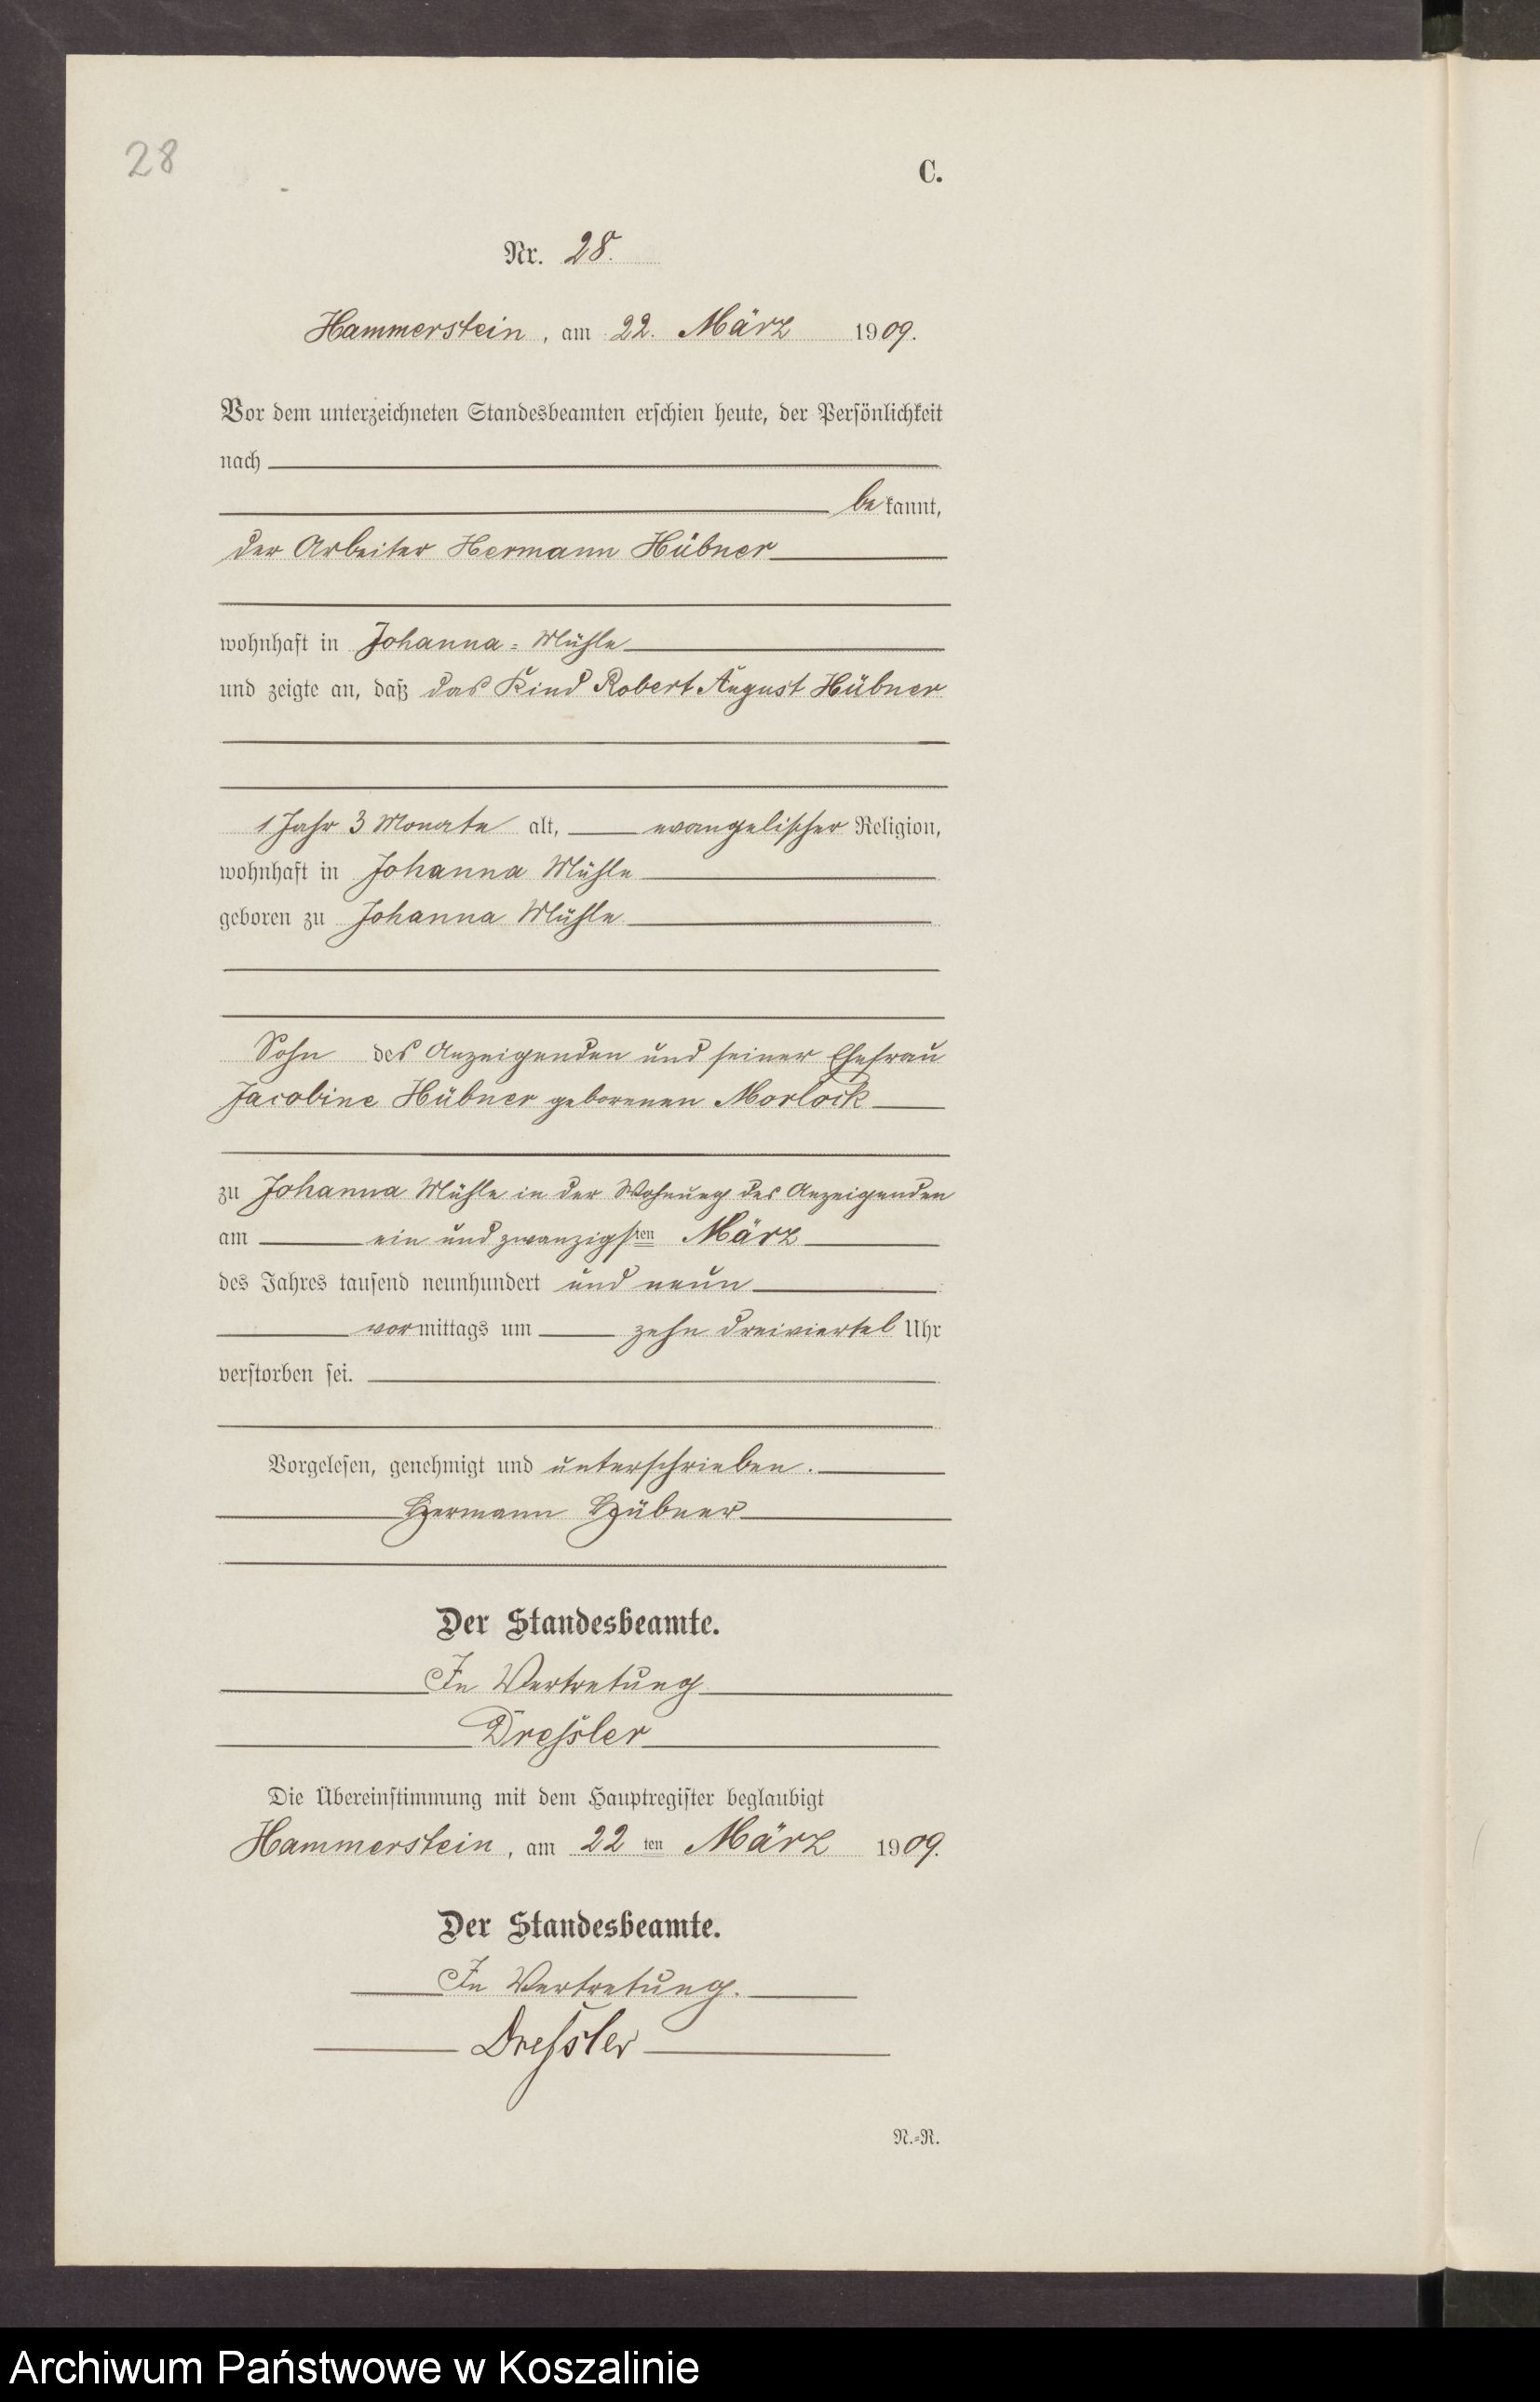 28
C.
Nr. 28.
Hammerstein, am 22. März 1909.
Vor dem unterzeichneten Standesbeamten erschien heute, der Persönlichkeit
nach
bekannt,
der Arbeiter Hermann Hübner
wohnhaft in Johanna-Mühle
und zeigte an, daß das Kind Robert August Hübner
1 Jahr 3 Monate alt, evangelischer Religion,
wohnhaft in Johanna Mühle
geboren zu Johanna Mühle
Sohn des Anzeigenden und seiner Ehefrau
Jacobine Hübner geborenen Morlock
zu Johanna Mühle in der Wohnung des Anzeigenden
am ein und zwanzigsten März
des Jahres tausend neunhundert und neun
vormittags um zehn dreiviertel Uhr
verstorben sei.
Vorgelesen, genehmigt und unterschrieben.
Hermann Hübner
Der Standesbeamte.
In Vertretung
Dreßler
Die Übereinstimmung mit dem Hauptregister beglaubigt
Hammerstein, am 22ten März 1909.
Der Standesbeamte.
In Vertretung.
Dreßler
N.-R.
Archiwum Państwowe w Koszalinie